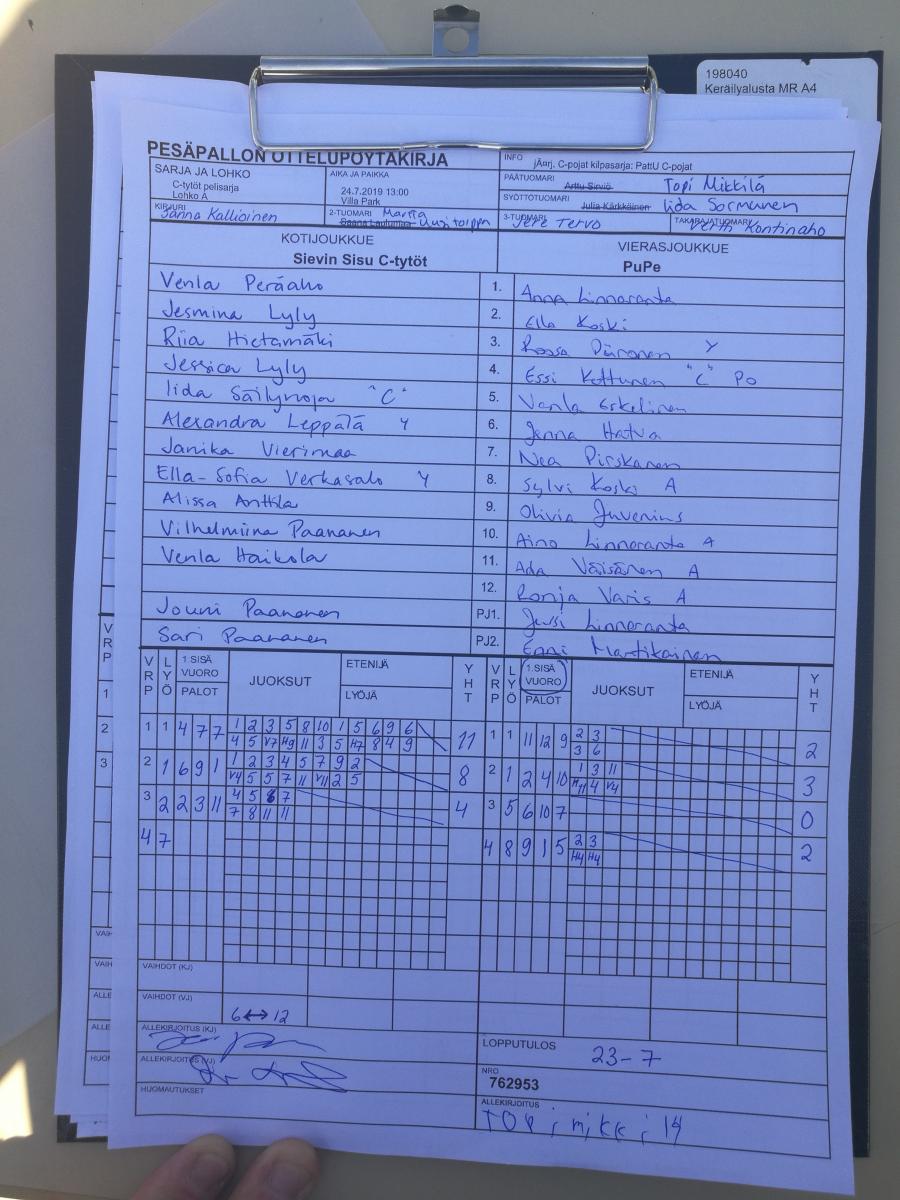 198040
Keräilyalusta MR A4
PESÄPALLON OTTELUPÖYTÄKIRJA
SARJA JA LOHKO
C-tytöt pelisarja
Lohko A
AIKA JA PAIKKA
24.7.2019 13:00
Villa Park
INFO
jÄnrj. C-pojat kilpasarja: PattU C-pojat
PÄÄTUOMARI Arttu Sirviö Topi Mikkilä
SYÖTTÖTUOMARI Julia Kärkkäinen Iida Sormunen
KIRJURI
Sanna Kallioinen
2-TUOMARI Martta
Uusitorppa
3-TUOMARI
Jere Tervo
TAKARAJATUOMARI
Kontinaho
KOTIJOUKKUE
Sievin Sisu C-tytöt
VIERASJOUKKUE
PuPe
Venla Peräaho 1. Anna Linnaranta
Jesmina Lyly 2. Ella Koski
Riia Hietamäki 3. Roosa Piironen Y
Jessica Lyly 4. Essi Kettunen "C" Po
Iida Säilynoja "C" 5. Vanla Eskelinen
Alexandra Leppälä Y 6. Jenna Hatva
Janika Vierimaa 7. Nea Pirskanen
Ella-Sofia Verkasalo Y 8. Sylvi Koski A
Alissa Anttila 9. Olivia Juvenius
Vilhelmiina Paananen 10. Aino Linnaranta A
Venla Haikola 11. Ada Väisänen A
12. Ronja Varis A
Jouni Paananen PJ1. Jussi Linnaranta
Sari Paananen PJ2. Enni Martikainen
VRP LYÖ 1.SISÄ VUORO PALOT JUOKSUT ETENIJÄ LYÖJÄ YHT VRP LYÖ 1.SISÄ VUORO PALOT JUOKSUT ETENIJÄ LYÖJÄ YHT
1 1 4 7 7 1 2 3 5 8 10 1 5 6 9 6 11 1 1 11 12 9 2 3 2
4 5 V7 H9 11 3 5 H7 8 4 9 3 6
2 1 6 9 1 1 2 3 4 5 7 9 2 8 2 1 2 4 10 1 3 11 3
V4 5 5 7 11 V11 2 5 H11 4 V4
3 2 2 3 11 4 5 6 7 4 3 5 6 10 7 0
7 8 11 11
4 7 4 8 9 1 5 2 3 2
H4 H4
VAIHDOT (KJ)
VAIHDOT (VJ)
6↔12
ALLEKIRJOITUS (KJ)
ALLEKIRJOITUS (VJ)
HUOMAUTUKSET
LOPPUTULOS
23-7
NRO
762953
ALLEKIRJOITUS
TOPi mikkilä
VRP
1
2
3
VAIH
VAIH
ALLE
ALLE
HUOM